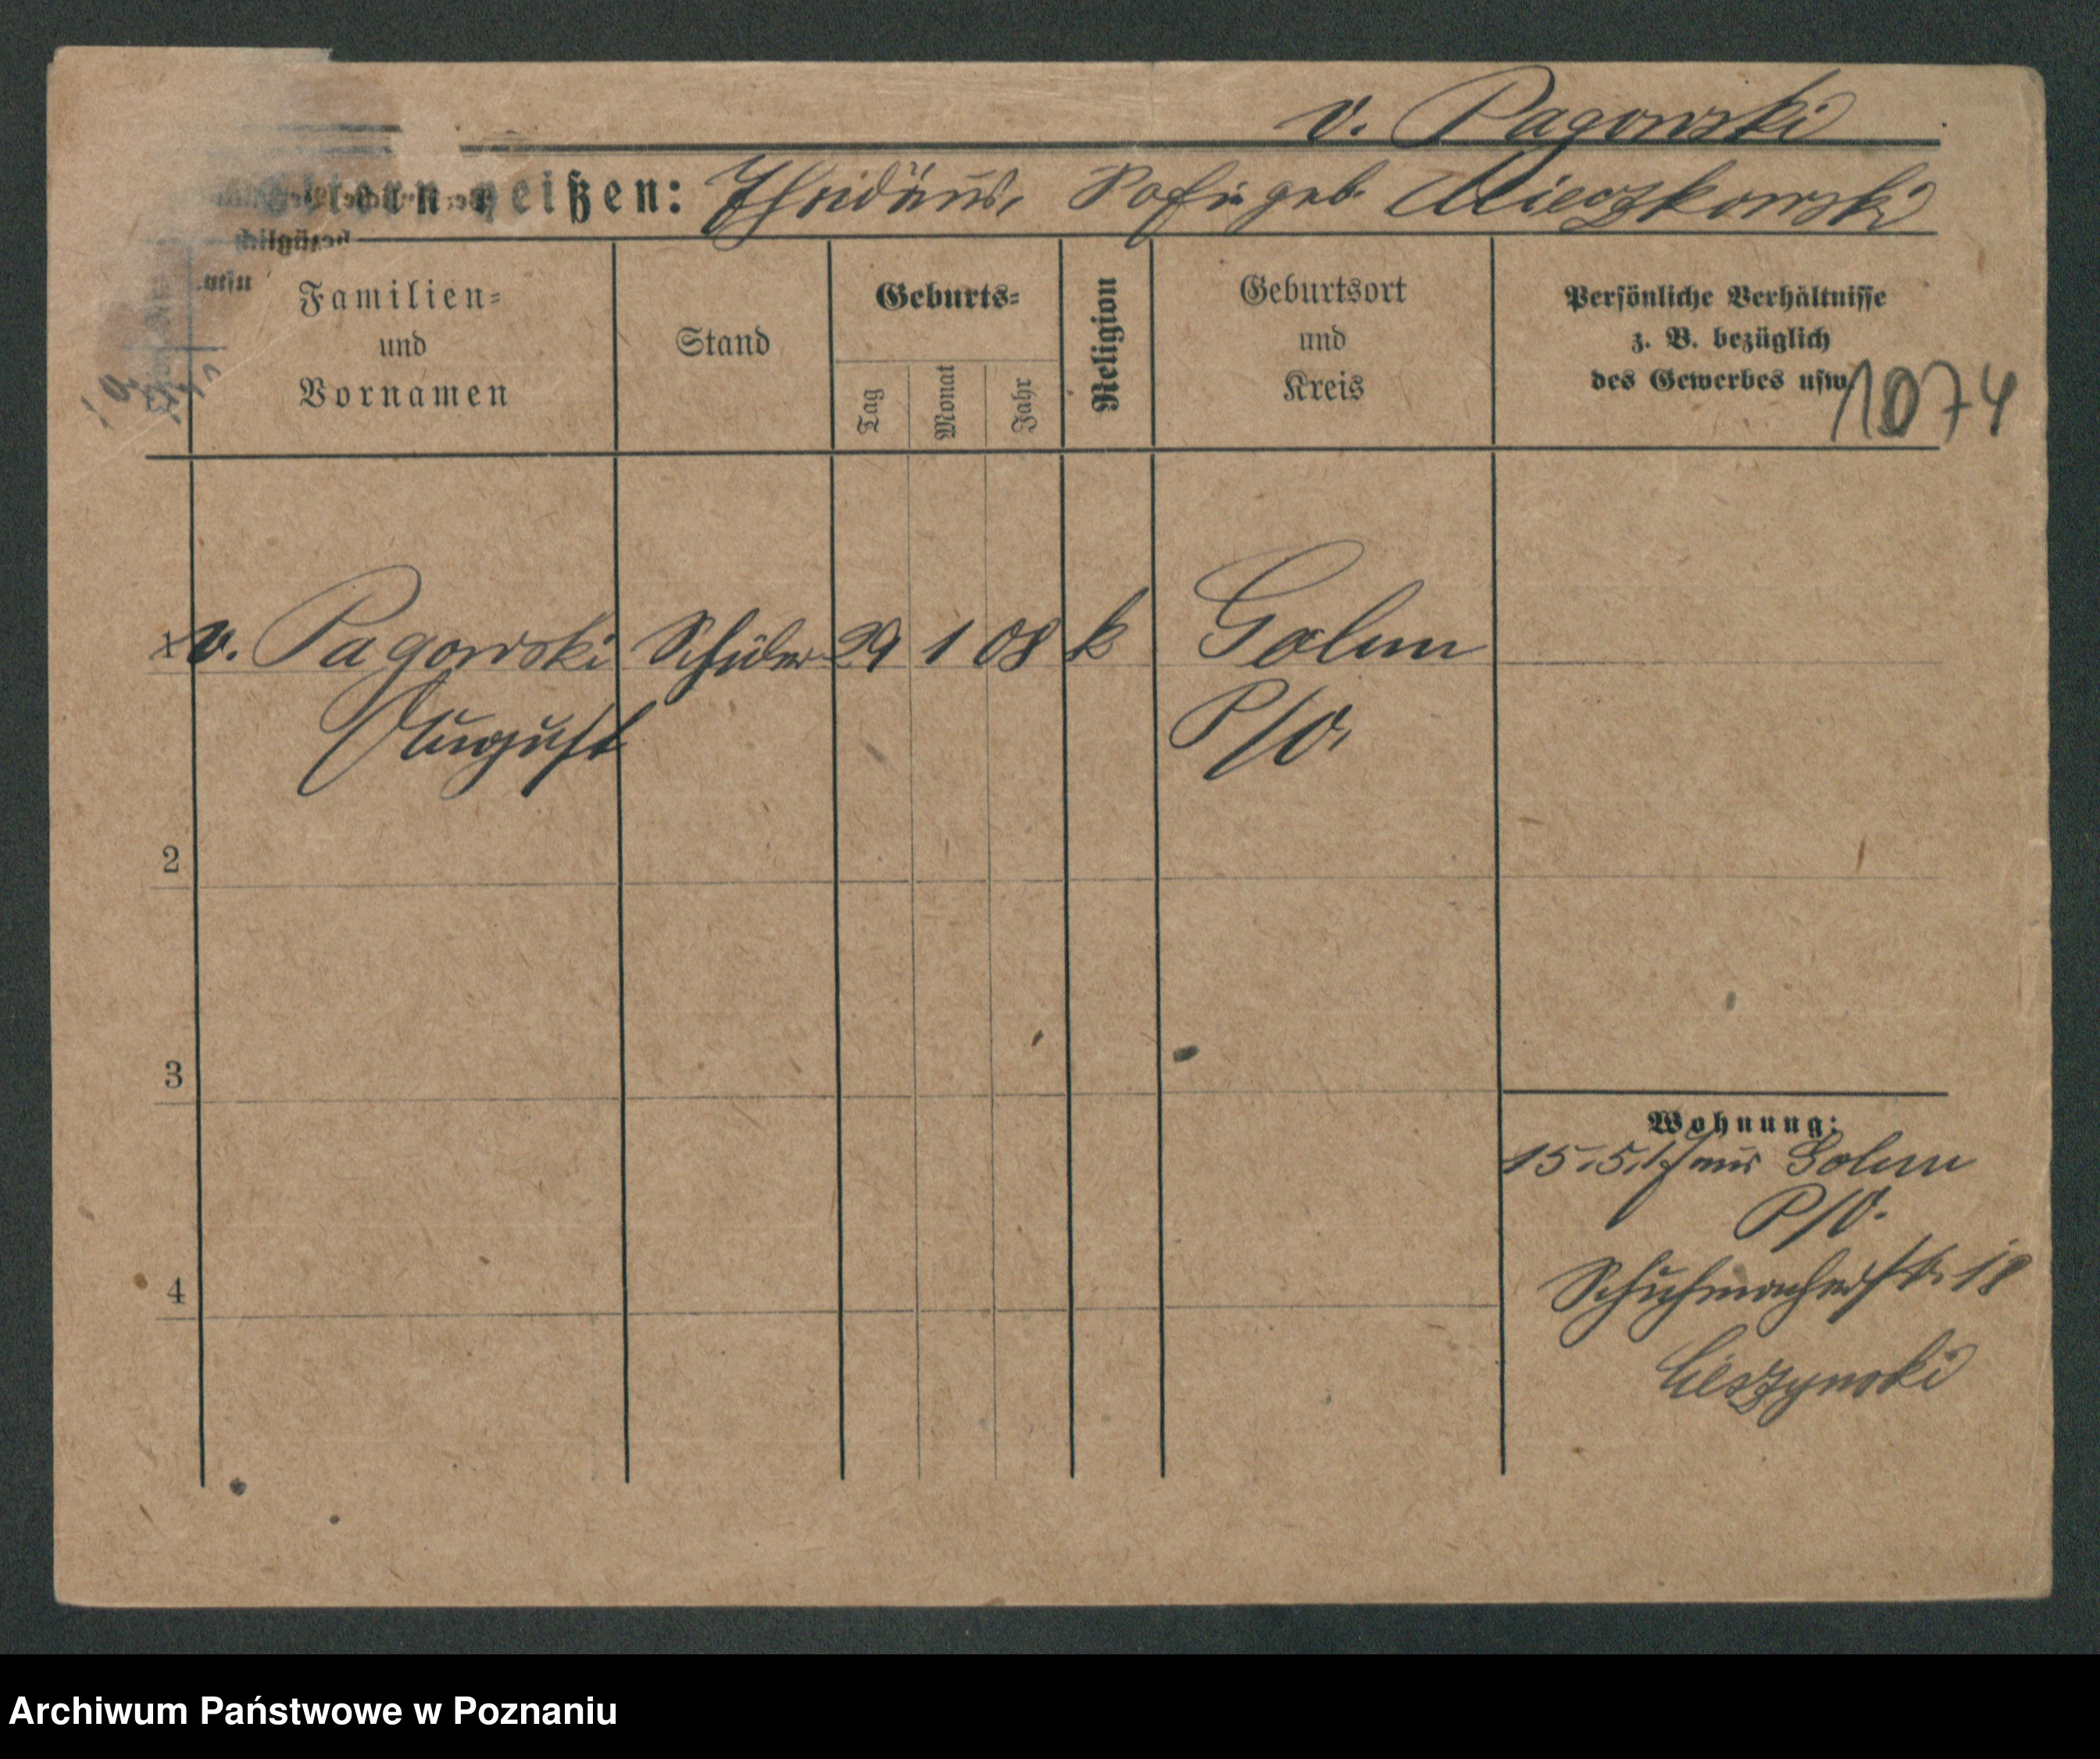 v. Pagowski
heißen: Thadäus, Sofie geb. Mieczkowski
Familien=
und
Vornamen
Stand
Geburts=
Tag
Monat
Jahr
Religion
Geburtsort
und
Kreis
Persönliche Verhältnisse
z. B. bezüglich
des Gewerbes usw.
1074
1 v. Pagowski Schüler 29 1 08 k Golun
August P/O.
2
3
4
Wohnung:
15.5.17 aus Golun
P/O.
Schuhmacherstr. 18
Cieszynski
Archiwum Państwowe w Poznaniu